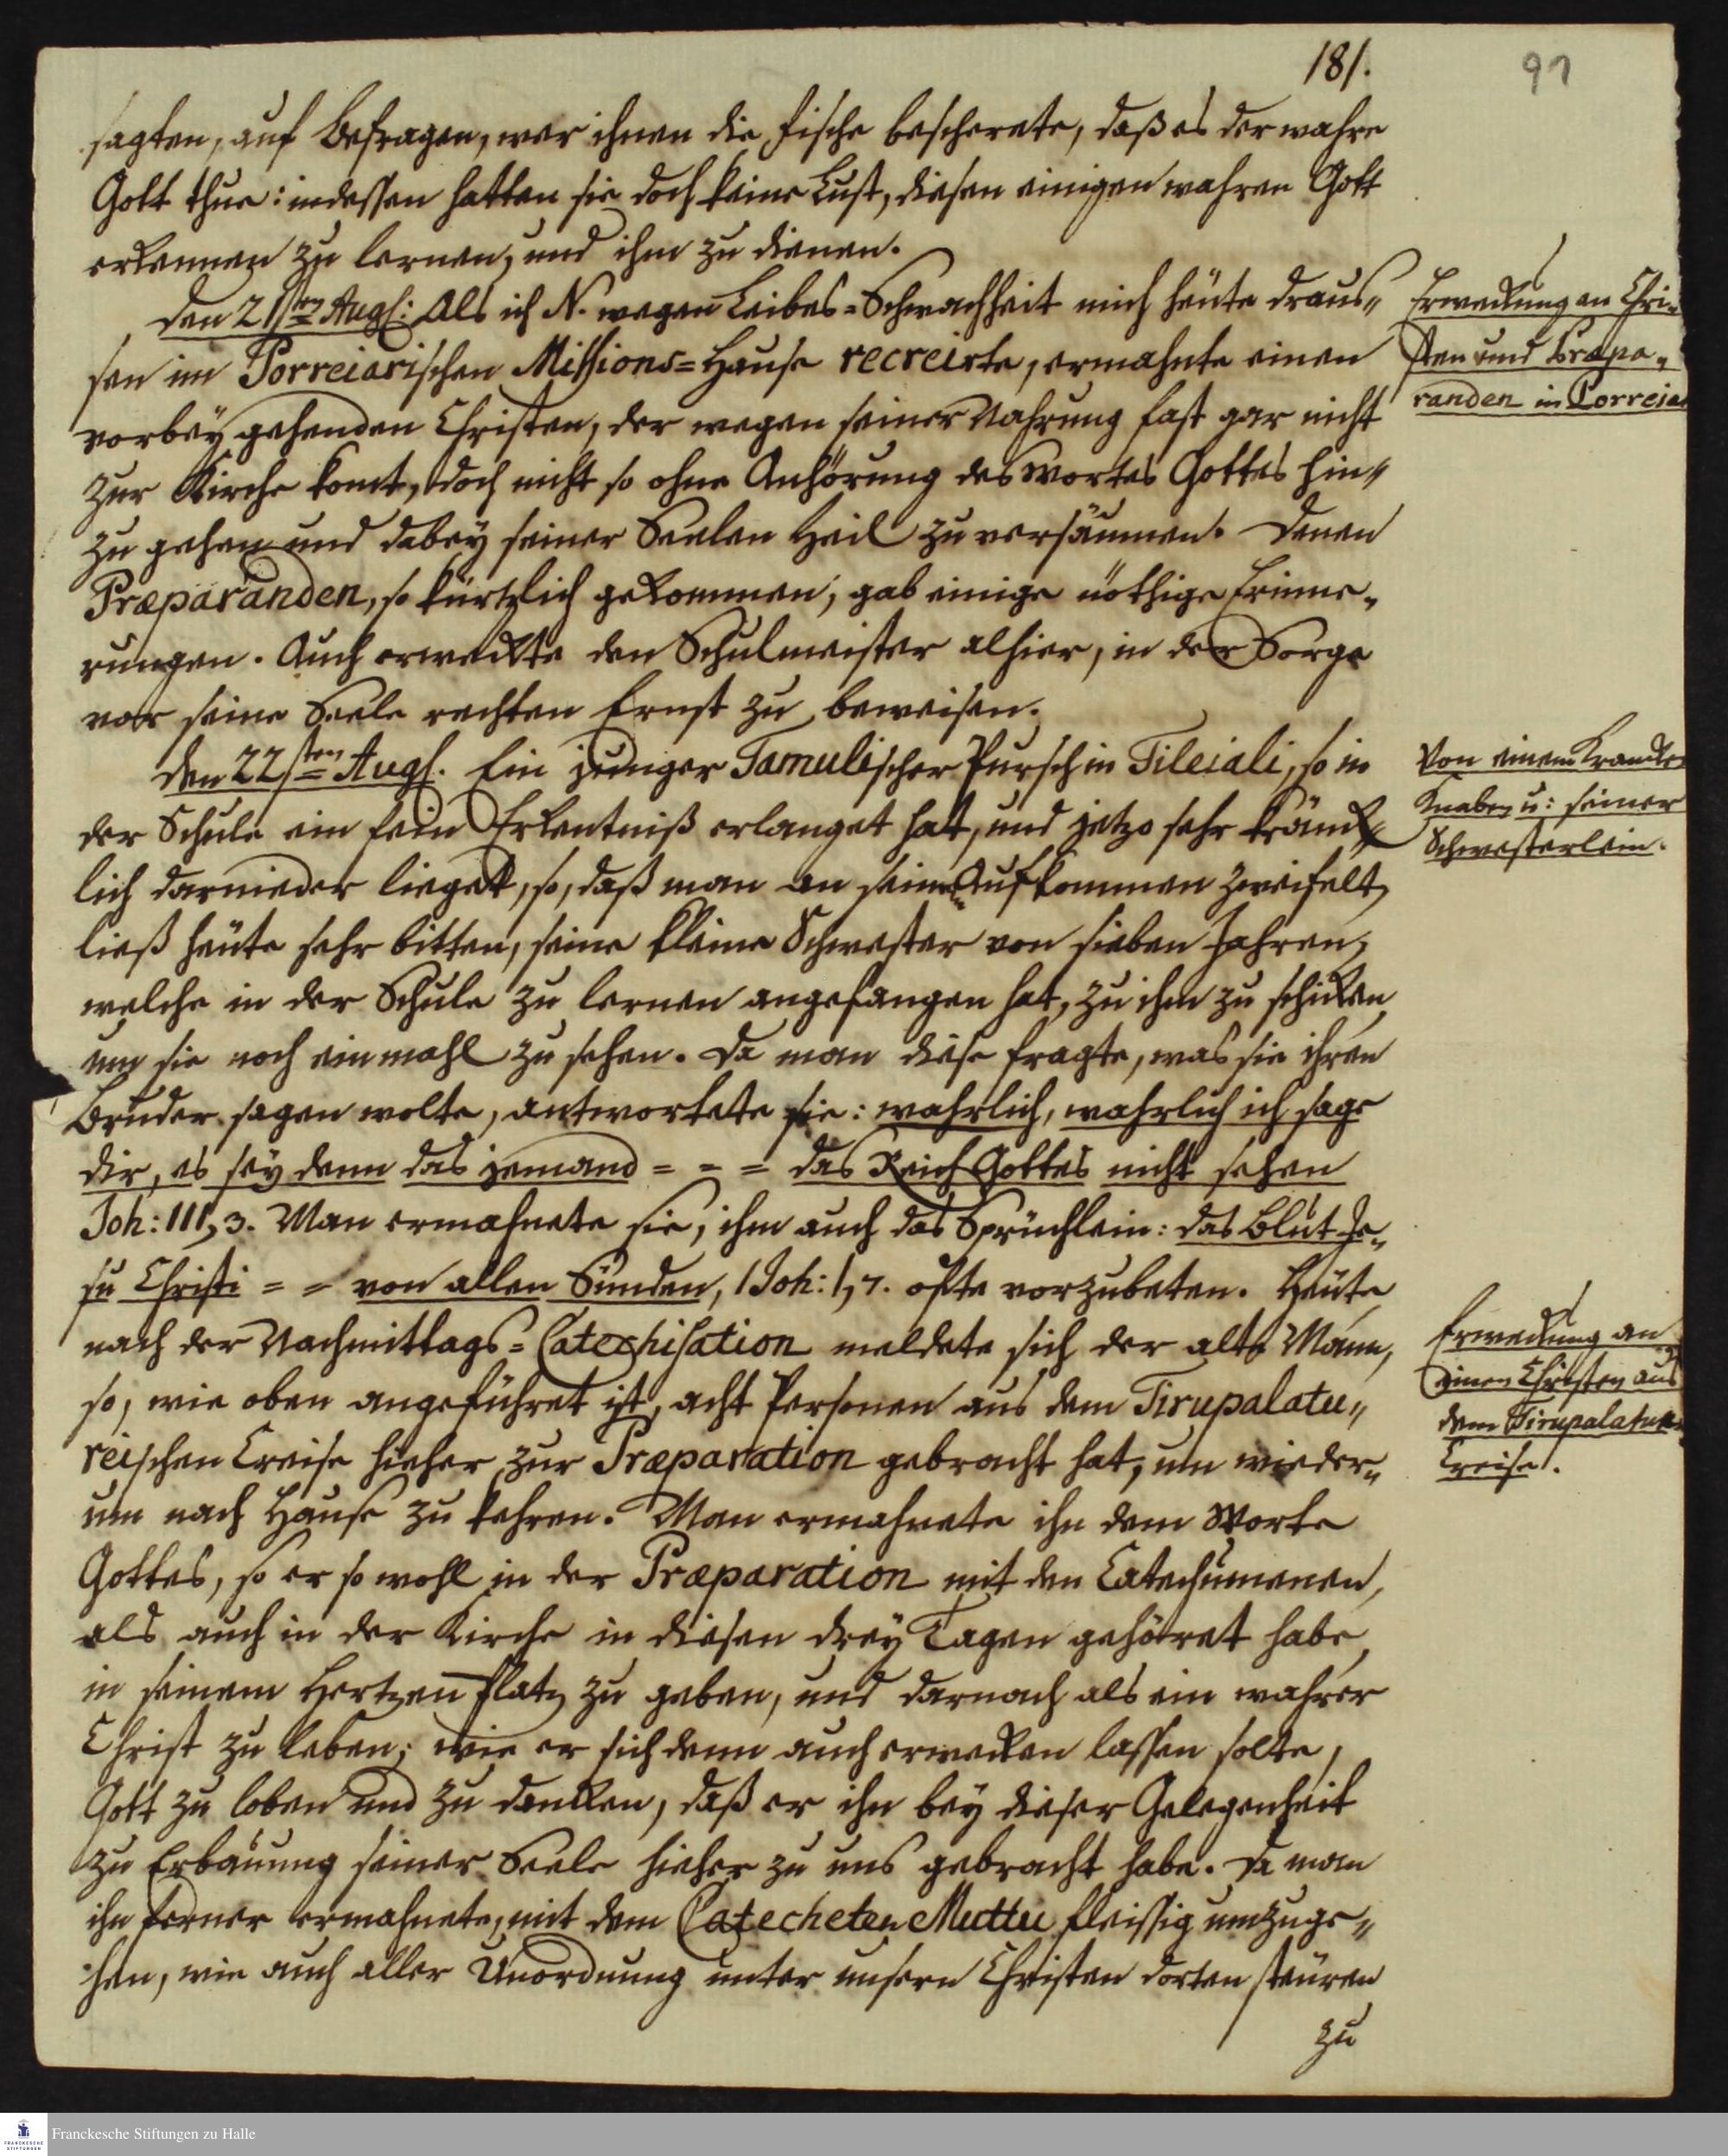 181.
91
sagten, auf Befragen, wer ihnen die Fische bescherete, daß es der wahre
Gott thue: indessen hatten sie doch keine Lust, diesen einigen wahren Gott
erkennen zu lernen, und ihm zu dienen.
den 21sten Augs: Als ich N. wegen Leibes=Schwachheit mich heute draus=
sen im Porreiarischen Missions=Hause recreirte, ermahnte einen
vorbey gehenden Christen, der wegen seiner Nahrung fast gar nicht
zur Kirche komt, doch nicht so ohne Anhörung des Wortes Gottes hin=
zu gehen und dabey seiner Seelen Heil zu versäumen. Denen
Præparanden, so kürtzlich gekommen, gab einige nöthige Erinne=
rungen. Auch erweckte den Schulmeister alhier, in der Sorge
vor seine Seele rechten Ernst zu beweisen.
Erweckung an Chri=
sten und Præpa=
randen in Porreiar
den 22sten Augs. Ein junger Tamulischer Pursch in Tileiali, so in
der Schule ein fein Erkentniß erlanget hat, und jetzo sehr kränck=
lich darnieder lieget, so, daß man an seinem Aufkommen zweifelt,
ließ heute sehr bitten, seine kleine Schwester von sieben Jahren,
welche in der Schule zu lernen angefangen hat, zu ihm zu schicken
um sie noch einmahl zu sehen. Da man diese fragte, was sie ihren
Bruder sagen wolte, antwortete sie: wahrlich, wahrlich ich sage
dir, es sey denn das jemand = = = das Reich Gottes nicht sehen
Joh: III, 3. Man ermahnete sie, ihm auch das Sprüchlein: das Blut Je=
su Christi = = von allen Sünden, 1 Joh: 1, 7. ofte vorzubeten. Heute
nach der Nachmittags=Catechisation meldete sich der alte Mann,
so, wie oben angeführet ist, acht Personen aus dem Tirupalatu=
reischen Creise hieher zur Præparation gebracht hat, um wieder=
um nach Hause zu kehren. Man ermahnete ihn dem Worte
Gottes, so er so wohl in der Præparation mit den Catechumenen,
als auch in der Kirche in diesen drey Tagen gehöret habe,
in seinem Hertzen Platz zu geben, und darnach als ein wahrer
Christ zu leben; wie er sich denn auch erwecken lassen solte,
Gott zu loben und zu dancken, daß er ihn bey dieser Gelegenheit
zu Erbauung seiner Seele hieher zu uns gebracht habe. Da man
ihn ferner ermahnete, mit dem Catecheten Muttu fleissig umzuge=
hen, wie auch aller Unordnung unter unsern Christen dorten steuren
zu
Von einem krancken
Knaben u: seiner
Schwesterlein.
Erweckung an
einen Christen aus
dem Tirupalatur.
Creise.
Franckesche Stiftungen zu Halle